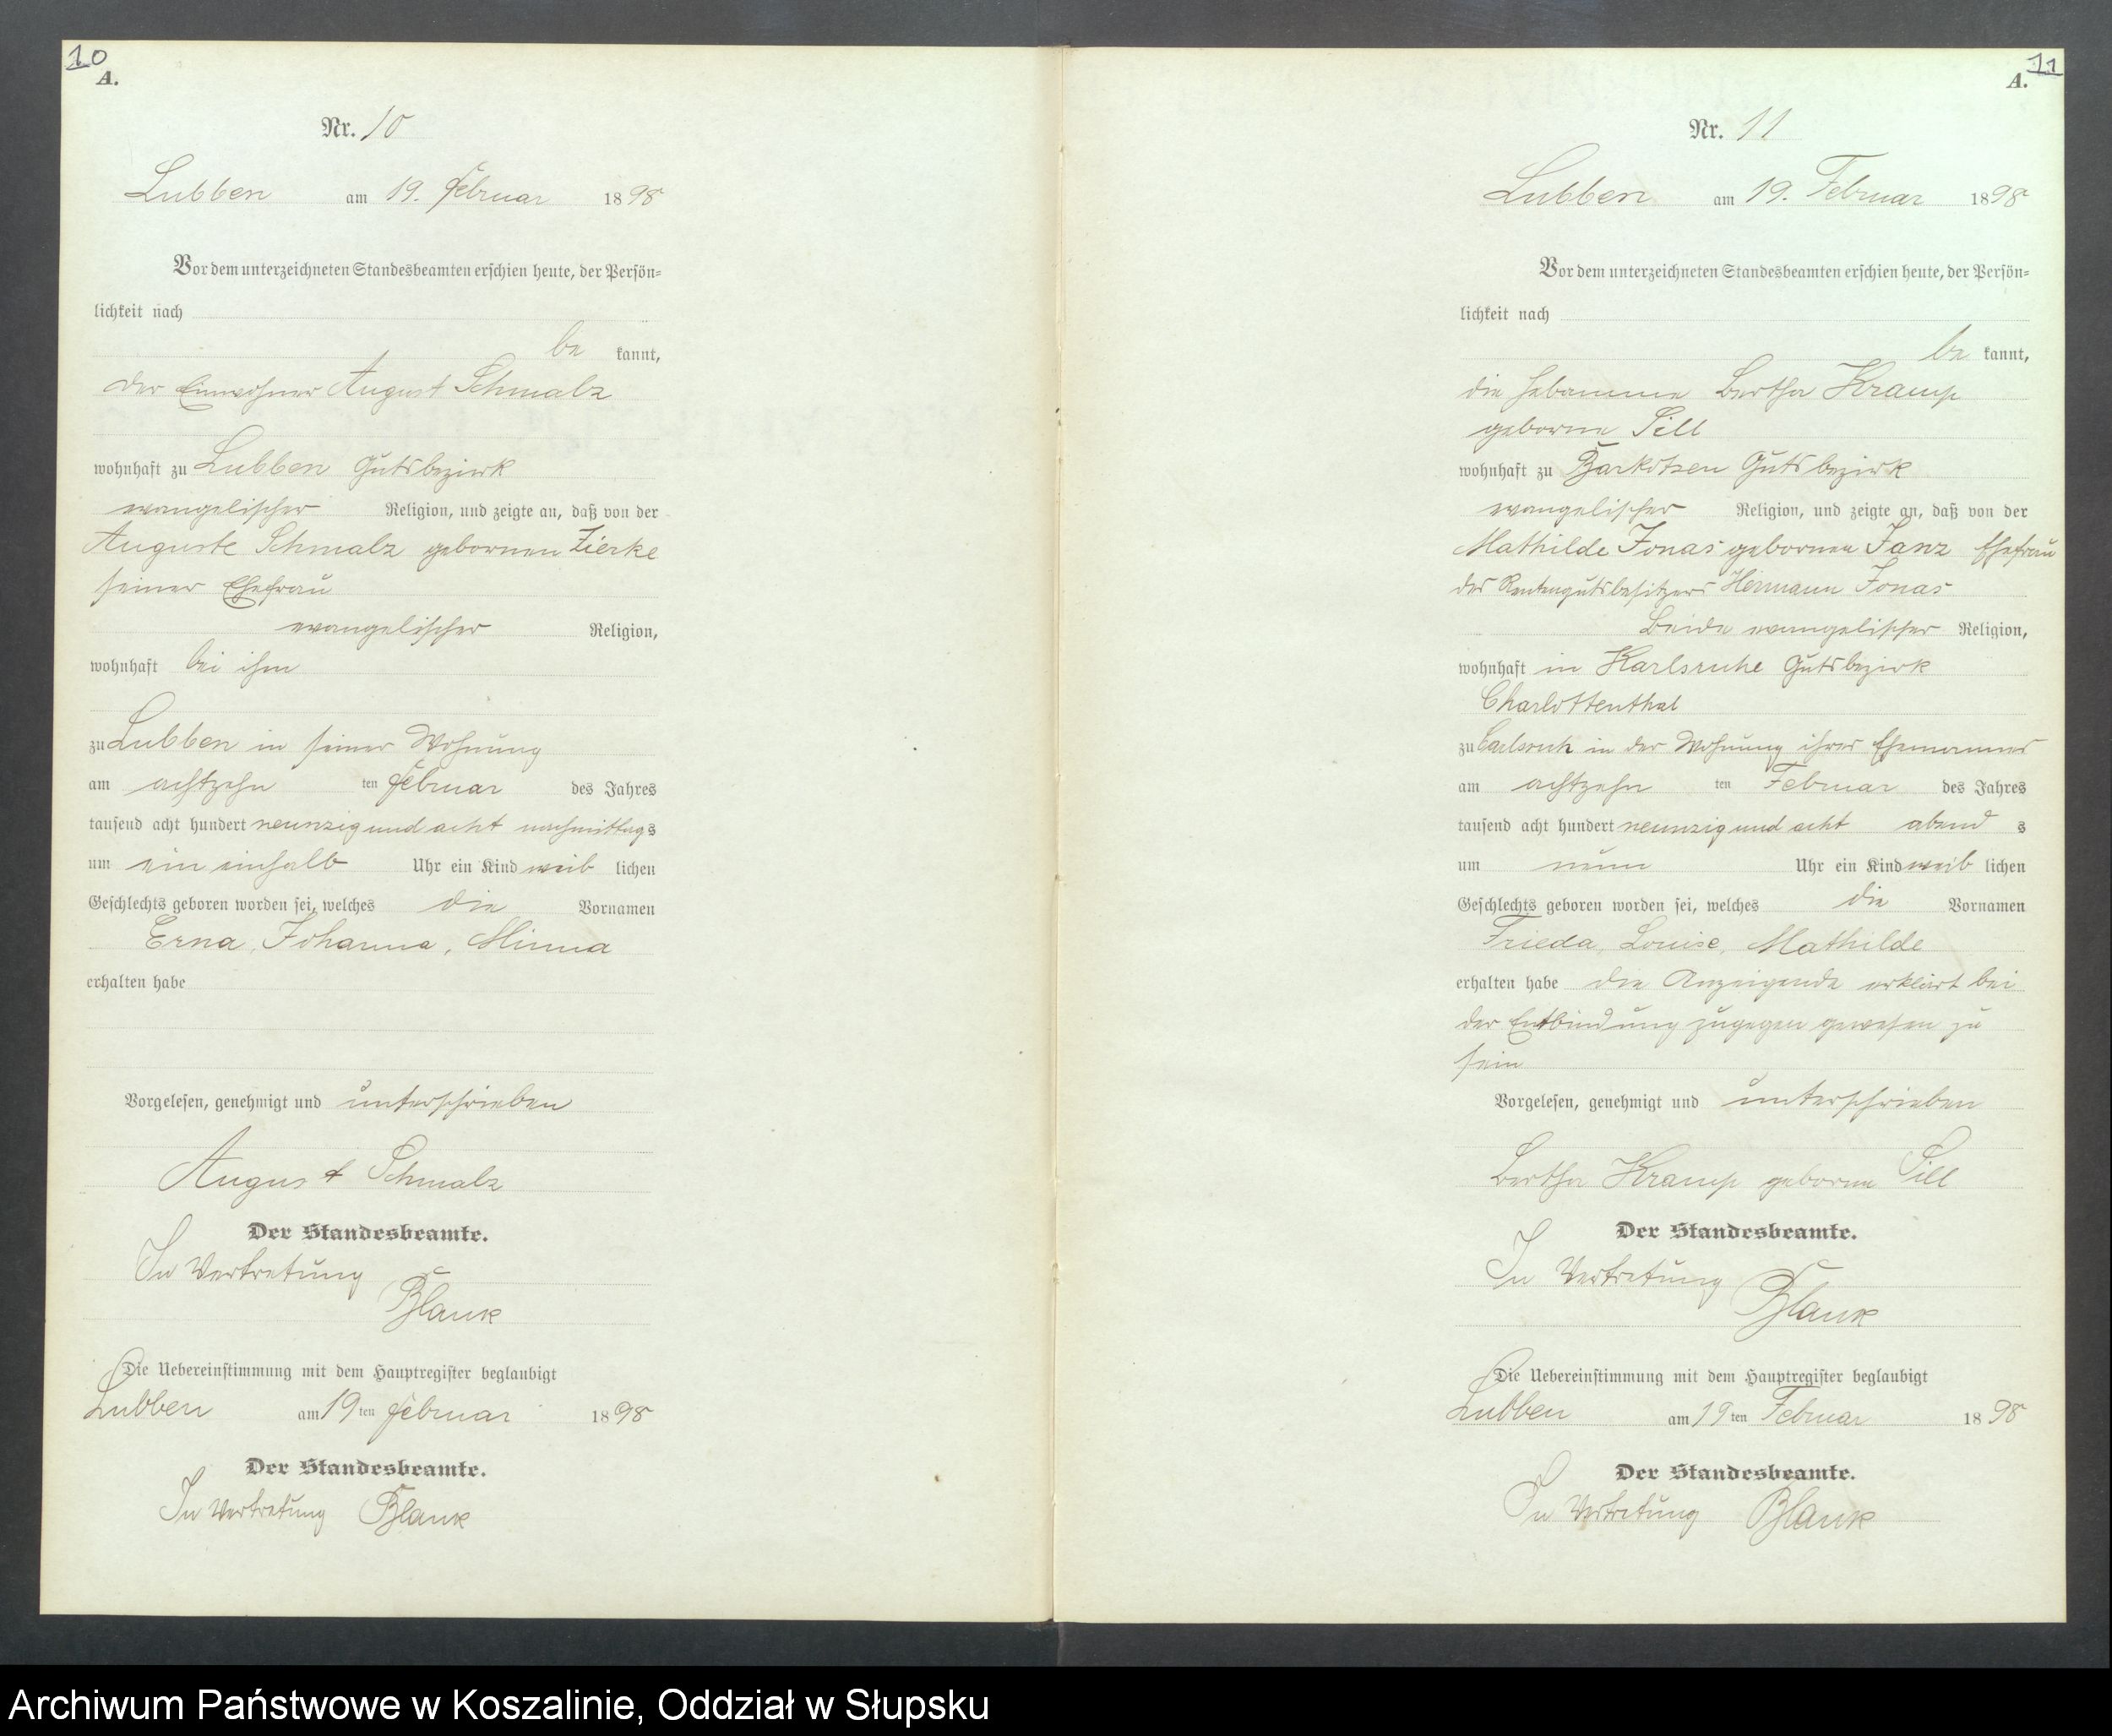 10
A.
Nr. 10
Lubben am 19. Februar 1898
Vor dem unterzeichneten Standesbeamten erschien heute, der Persön=
lichkeit nach
be kannt,
der Einwohner August Schmalz
wohnhaft zu Lubben Gutsbezirk
evangelischer Religion, und zeigte an, daß von der
Auguste Schmalz gebornen Zierke
seiner Ehefrau
evangelischer Religion,
wohnhaft bei ihm
zu Lubben in seiner Wohnung
am achtzehn ten Februar des Jahres
tausend acht hundert neunzig und acht nachmittags
um ein einhalb Uhr ein Kind weib lichen
Geschlechts geboren worden sei, welches die Vornamen
Erna, Johanna, Minna
erhalten habe
Vorgelesen, genehmigt und unterschrieben
August Schmalz
Der Standesbeamte.
In Vertretung
Blank
Die Uebereinstimmung mit dem Hauptregister beglaubigt
Lubben am 19 ten Februar 1898
Der Standesbeamte.
In Vertretung Blank
11
A.
Nr. 11
Lubben am 19. Februar 1898
Vor dem unterzeichneten Standesbeamten erschien heute, der Persön=
lichkeit nach
be kannt,
die Hebamme Bertha Kramp
geborne Sill
wohnhaft zu Barkotzen Gutsbezirk
evangelischer Religion, und zeigte an, daß von der
Mathilde Jonas gebornen Janz Ehefrau
des Rentengutsbesitzers Hermann Jonas
beide evangelischer Religion,
wohnhaft in Karlsruhe Gutsbezirk
Charlottenthal
zu Carlsruh in der Wohnung ihres Ehemannes
am achtzehn ten Februar des Jahres
tausend acht hundert neunzig und acht abend s
um neun Uhr ein Kind weib lichen
Geschlechts geboren worden sei, welches die Vornamen
Frieda, Louise, Mathilde
erhalten habe die Anzeigende erklärt bei
der Entbindung zugegen gewesen zu
sein
Vorgelesen, genehmigt und unterschrieben
Bertha Kramp geborne Sill
Der Standesbeamte.
In Vertretung
Blank
Die Uebereinstimmung mit dem Hauptregister beglaubigt
Lubben am 19 ten Februar 1898
Der Standesbeamte.
In Vertretung Blank
Archiwum Państwowe w Koszalinie, Oddział w Słupsku